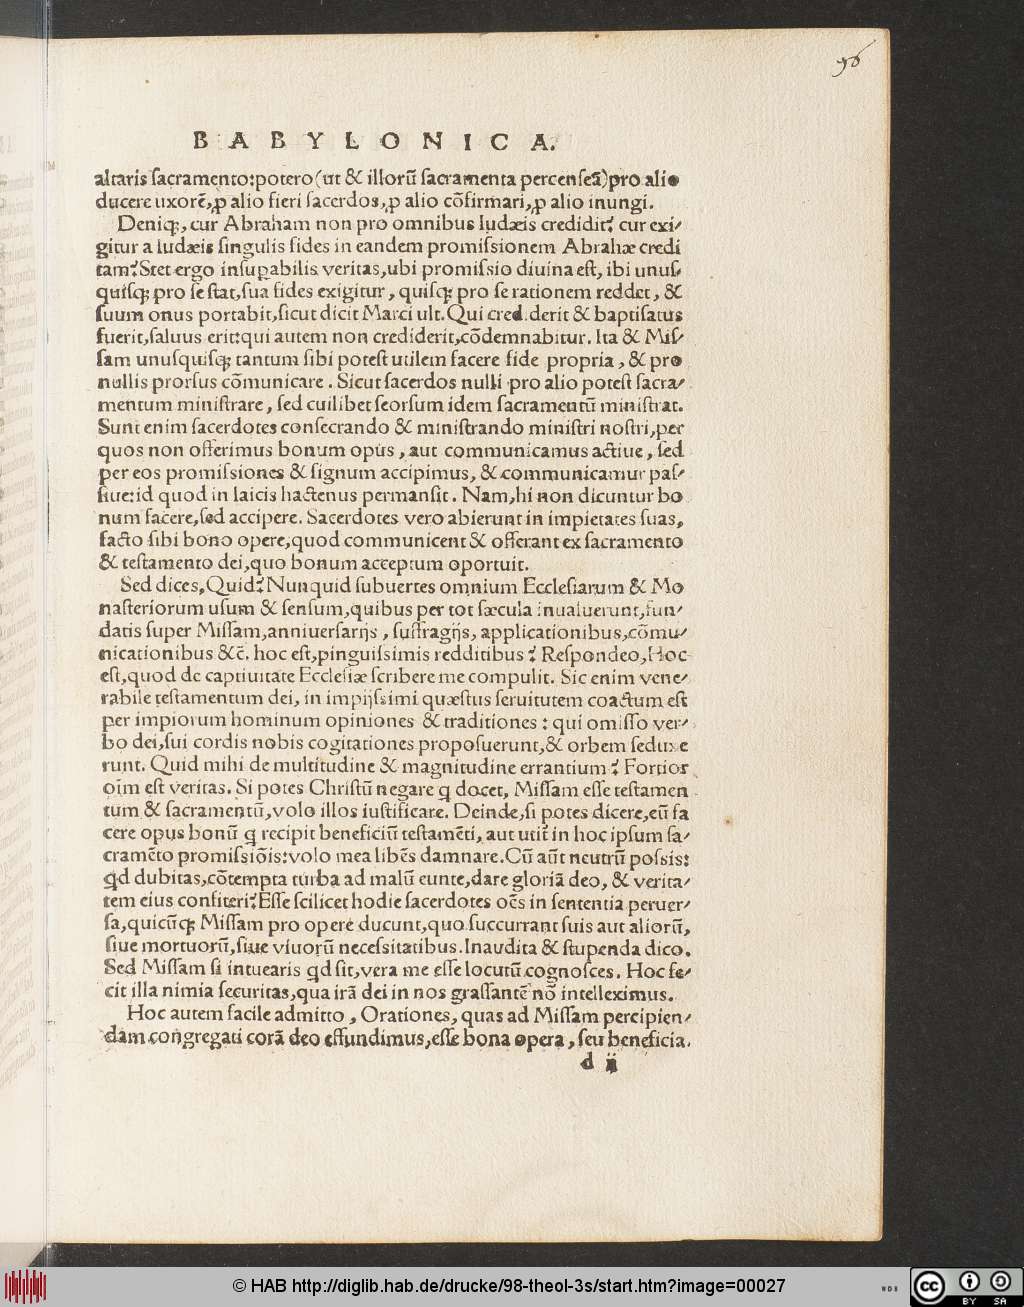 96
BABYLONICA.
altaris ſacramento:potero(ut & illorū ſacramenta percenſeā)pro alio
ducere uxorē,ꝓ alio fieri ſacerdos,ꝓ alio cōfirmari,ꝓ alio inungi.
Deniqꝫ,cur Abraham non pro omnibus Iudæis credidit? cur exi⸗
gitur a Iudæis ſingulis fides in eandem promiſsionem Abrahæ credi
tam?Stet ergo inſupabilis veritas,ubi promiſsio diuina eſt, ibi unuſ⸗
quiſqꝫ pro ſe ſtat,ſua fides exigitur, quiſqꝫ pro ſe rationem reddet, &
ſuum onus portabit,ſicut dicit Marci ult.Qui cred.derit & baptiſatus
fuerit,ſaluus erit:qui autem non crediderit,cōdemnabitur. Ita & Miſ⸗
ſam unuſquiſqꝫ tantum ſibi poteſt utilem facere fide propria, & pro
nullis prorſus cōmunicare. Sicut ſacerdos nulli pro alio poteſt ſacra⸗
mentum miniſtrare, ſed cuilibet ſeorſum idem ſacramentū miniſtrat.
Sunt enim ſacerdotes conſecrando & miniſtrando miniſtri noſtri,per
quos non offerimus bonum opus, aut communicamus actiue, ſed
per eos promiſsiones & ſignum accipimus, & communicamur paſ⸗
ſiue:id quod in laicis hactenus permanſit. Nam,hi non dicuntur bo
num facere,ſed accipere. Sacerdotes vero abierunt in impietates ſuas,
facto ſibi bono opere,quod communicent & offerant ex ſacramento
& teſtamento dei,quo bonum acceptum oportuit.
Sed dices,Quid?Nunquid ſubuertes omnium Eccleſiarum & Mo
naſteriorum uſum & ſenſum,quibus per tot ſæcula inualuerunt,fun⸗
datis ſuper Miſſam,anniuerſarijs, ſuffragijs, applicationibus,cōmu⸗
nicationibus &c̄. hoc eſt,pinguiſsimis redditibus? Reſpondeo,Hoc
eſt,quod de captiuitate Eccleſiæ ſcribere me compulit. Sic enim vene⸗
rabile teſtamentum dei, in impijſsimi quæſtus ſeruitutem coactum eſt
per impiorum hominum opiniones & traditiones: qui omiſſo ver⸗
bo dei,ſui cordis nobis cogitationes propoſuerunt,& orbem ſeduxe
runt. Quid mihi de multitudine & magnitudine errantium? Fortior
oīm eſt veritas. Si potes Chriſtū negare q docet, Miſſam eſſe teſtamen
tum & ſacramentū,volo illos iuſtificare. Deinde,ſi potes dicere,eū fa
cere opus bonū q recipit beneficiū teſtamēti, aut utit in hoc ipſum ſa⸗
cramēto promiſsiōis:volo mea libēs damnare.Cū aūt neutrū poſsis:
qd dubitas,cōtempta turba ad malū eunte,dare gloriā deo, & verita⸗
tem eius confiteri?Eſſe ſcilicet hodie ſacerdotes oēs in ſententia peruer⸗
ſa,quicūqꝫ Miſſam pro opere ducunt,quo ſuccurrant ſuis aut aliorū,
ſiue mortuorū,ſiue viuorū neceſsitatibus.Inaudita & ſtupenda dico.
Sed Miſſam ſi intuearis qd ſit,vera me eſſe locutū cognoſces. Hoc fe⸗
cit illa nimia ſecuritas,qua irā dei in nos graſſantē nō intelleximus.
Hoc autem facile admitto, Orationes, quas ad Miſſam percipien⸗
dam congregati corā deo effundimus,eſſe bona opera, ſeu beneficia.
d ij
© HAB http://diglib.hab.de/drucke/98-theol-3s/start.htm?image=00027
WDB
CC BY SA